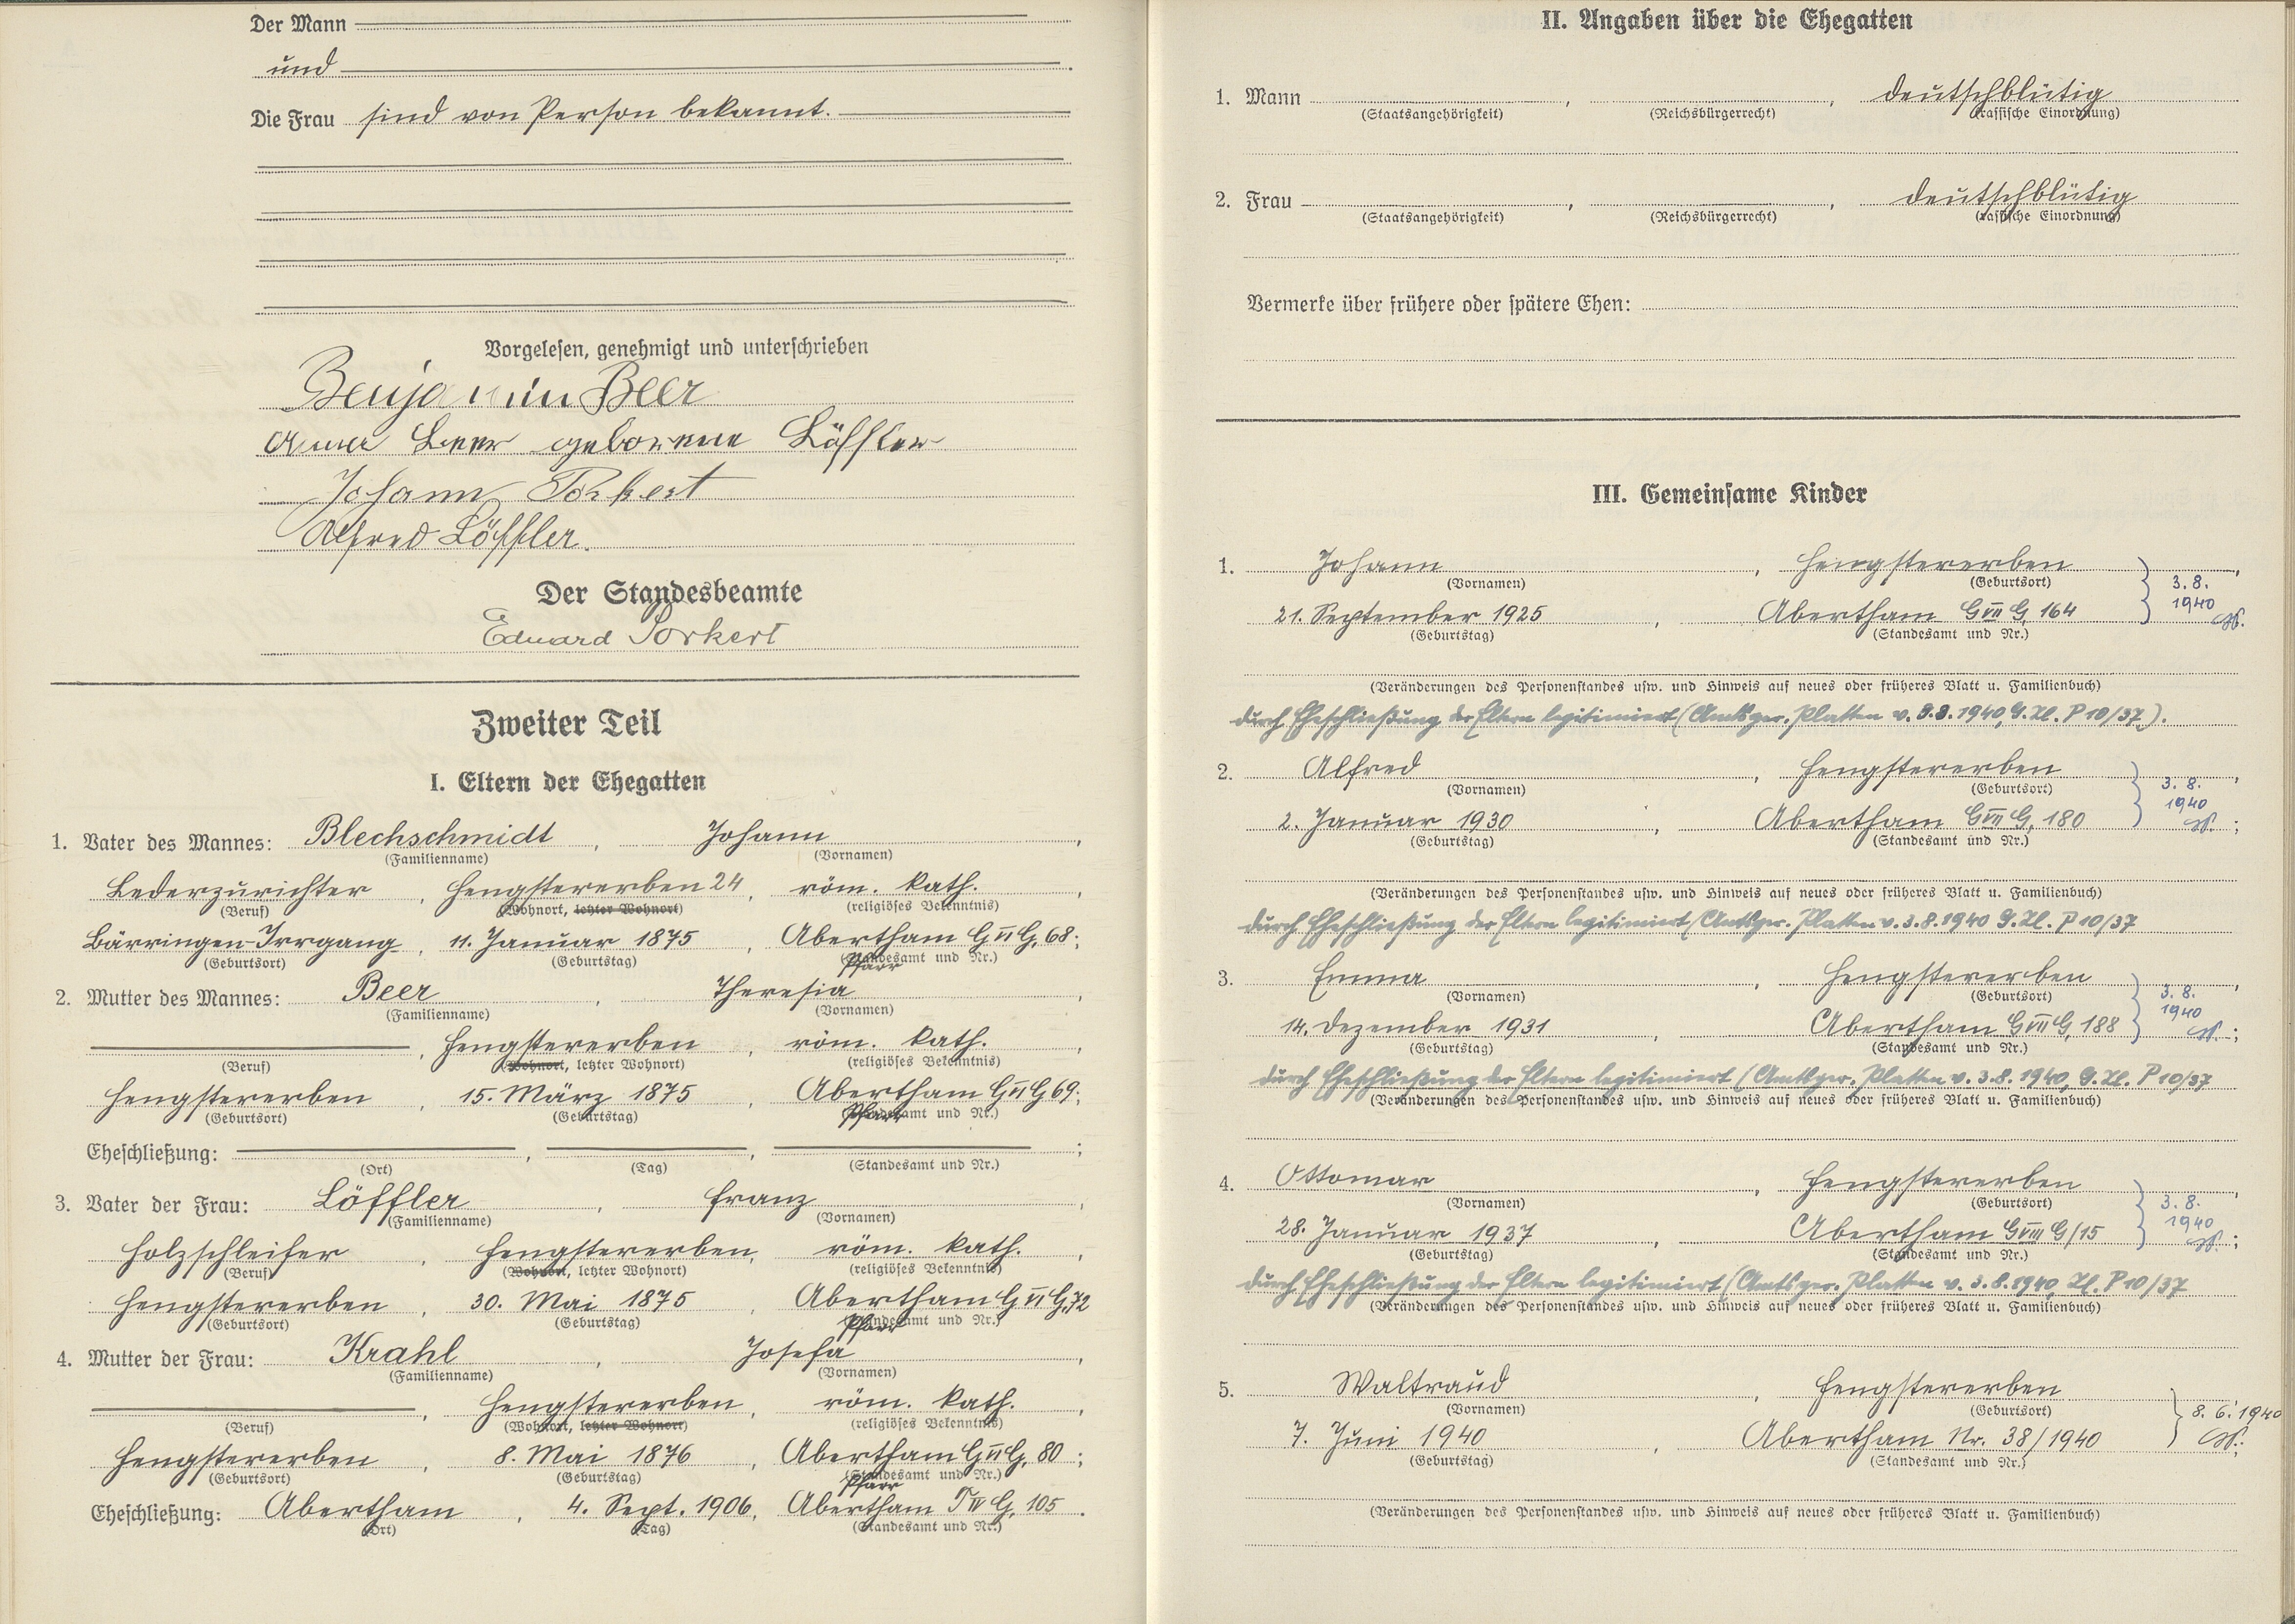 Der Mann
und
Die Frau sind von Person bekannt.
Vorgelesen, genehmigt und unterschrieben
Benjamin Beer
Anna Beer geborene Löffler
Johann Porkert
Alfred Löffler.
Der Standesbeamte
Eduard Porkert
Zweiter Teil
I. Eltern der Ehegatten
1. Vater des Mannes: Blechschmidt, Johann,
(Familienname) (Vornamen)
Lederzurichter, Hengstererben 24, röm. kath.,
(Beruf) (Wohnort, letzter Wohnort) (religiöses Bekenntnis)
Bärringen-Irrgang, 11. Januar 1875, Abertham G VI G, 68;
(Geburtsort) (Geburtstag) (Standesamt und Nr.)
Pfarr
2. Mutter des Mannes: Beer, Theresia,
(Familienname) (Vornamen)
, Hengstererben, röm. kath.,
(Beruf) (Wohnort, letzter Wohnort) (religiöses Bekenntnis)
Hengstererben, 15. März 1875, Abertham G VI G 69;
(Geburtsort) (Geburtstag) (Standesamt und Nr.)
Pfarr
Eheschließung: , , ;
(Ort) (Tag) (Standesamt und Nr.)
3. Vater der Frau: Löffler, Franz,
(Familienname) (Vornamen)
Holzschleifer, Hengstererben, röm. kath.,
(Beruf) (Wohnort, letzter Wohnort) (religiöses Bekenntnis)
Hengstererben, 30. Mai 1875, Abertham G VI G, 72
(Geburtsort) (Geburtstag) (Standesamt und Nr.)
Pfarr
4. Mutter der Frau: Krahl, Josefa,
(Familienname) (Vornamen)
, Hengstererben, röm. kath.,
(Beruf) (Wohnort, letzter Wohnort) (religiöses Bekenntnis)
Hengstererben, 8. Mai 1876, Abertham G VI G, 80;
(Geburtsort) (Geburtstag) (Standesamt und Nr.)
Pfarr
Eheschließung: Abertham, 4. Sept. 1906, Abertham T IV G, 105.
(Ort) (Tag) (Standesamt und Nr.)
II. Angaben über die Ehegatten
1. Mann , , deutschblütig
(Staatsangehörigkeit) (Reichsbürgerrecht) (rassische Einordnung)
2. Frau , , deutschblütig
(Staatsangehörigkeit) (Reichsbürgerrecht) (rassische Einordnung)
Vermerke über frühere oder spätere Ehen:
III. Gemeinsame Kinder
1. Johann, Hengstererben,
(Vornamen) (Geburtsort) 3. 8.
21. September 1925, Abertham G VII G, 164 1940
(Geburtstag) (Standesamt und Nr.)
(Veränderungen des Personenstandes usw. und Hinweis auf neues oder früheres Blatt u. Familienbuch)
durch Eheschließung der Eltern legitimiert (Amtsger. Platten v. 3.8.1940, G. Zl. P 10/37).
2. Alfred, Hengstererben,
(Vornamen) (Geburtsort) 3. 8.
2. Januar 1930, Abertham G VII G, 180 1940;
(Geburtstag) (Standesamt und Nr.)
(Veränderungen des Personenstandes usw. und Hinweis auf neues oder früheres Blatt u. Familienbuch)
durch Eheschließung der Eltern legitimiert (Amtsger. Platten v. 3.8.1940 G. Zl. P 10/37
3. Emma, Hengstererben,
(Vornamen) (Geburtsort) 3. 8.
14. Dezember 1931, Abertham G VII G, 188 1940;
(Geburtstag) (Standesamt und Nr.)
durch Eheschließung der Eltern legitimiert (Amtsger. Platten v. 3.8.1940, G. Zl. P 10/37
(Veränderungen des Personenstandes usw. und Hinweis auf neues oder früheres Blatt u. Familienbuch)
4. Ottomar, Hengstererben,
(Vornamen) (Geburtsort) 3. 8.
28. Januar 1937, Abertham G VIII G/15 1940;
(Geburtstag) (Standesamt und Nr.)
durch Eheschließung der Eltern legitimiert (Amtsger. Platten v. 3.8.1940, Zl. P 10/37
(Veränderungen des Personenstandes usw. und Hinweis auf neues oder früheres Blatt u. Familienbuch)
5. Waltraud, Hengstererben
(Vornamen) (Geburtsort) 8. 6. 1940
7. Juni 1940, Abertham Nr. 38/1940;
(Geburtstag) (Standesamt und Nr.)
(Veränderungen des Personenstandes usw. und Hinweis auf neues oder früheres Blatt u. Familienbuch)